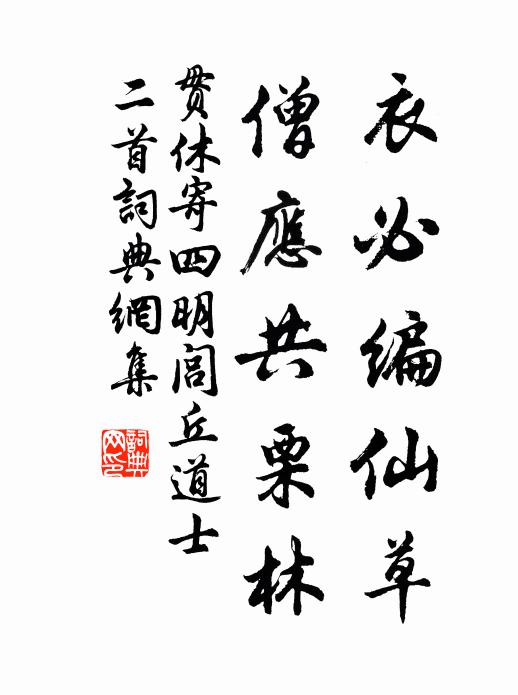 衣必編仙草
僧應共栗林
貫休寄四明閭丘道士
二首詞典網集
詞典
网印